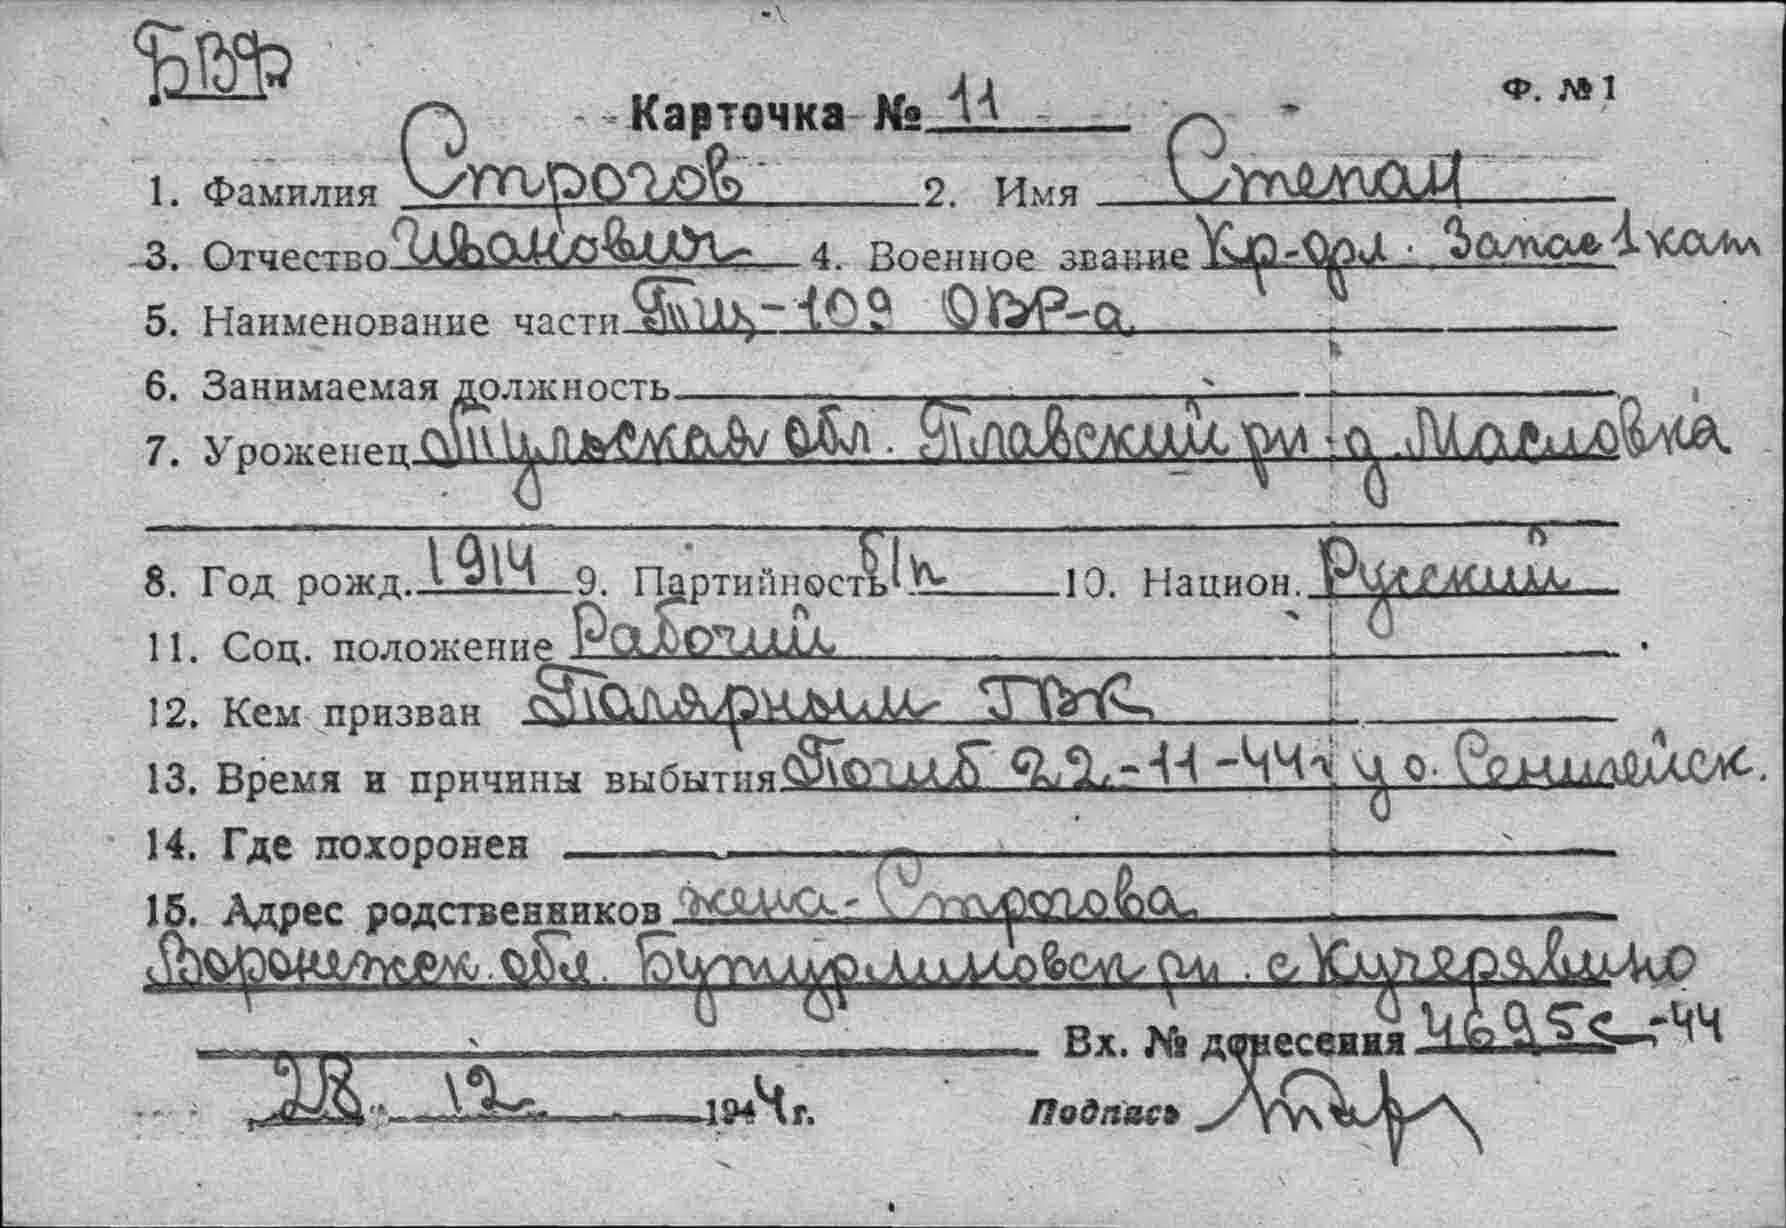 БВФ
Ф. № 1
Карточка № 11
1. Фамилия Строгов 2. Имя Степан
3. Отчество Иванович 4. Военное звание Кр-фл. Запас 1 кат
5. Наименование части ТЩ-109 ОВР-а
6. Занимаемая должность
7. Уроженец Тульская обл. Плавский рн. д. Масловка
8. Год рожд. 1914 9. Партийность б/п 10. Национ. Русский
11. Соц. положение Рабочий
12. Кем призван Полярным ГВК
13. Время и причины выбытия Погиб 22-11-44г у о. Сенигейск.
14. Где похоронен
15. Адрес родственников жена - Строгова
Воронежск. обл. Бутурлиновск рн. с Кучерявино
Вх. № донесения 4695с-44
28. 12 1944 г. Подпись